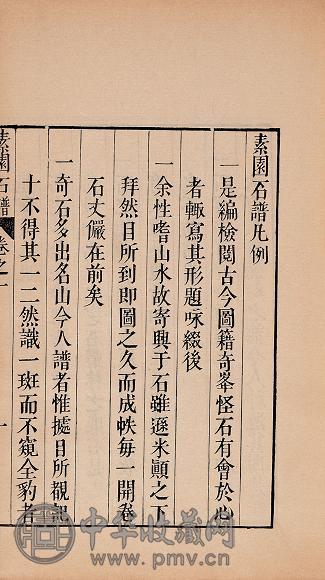 素園石譜凡例
一是編檢閱古今圖籍奇峯怪石有會於心
者輙寫其形題咏綴後
一余性嗜山水故寄興于石雖遜米顛之下
拜然目所到即圖之久而成帙每一開卷
石丈儼在前矣
一奇石多出名山今人譜者惟據目所覩記
十不得其一二然識一斑而不窺全豹者
素園石譜 卷之一
一
中华收藏网
www.pmv.cn